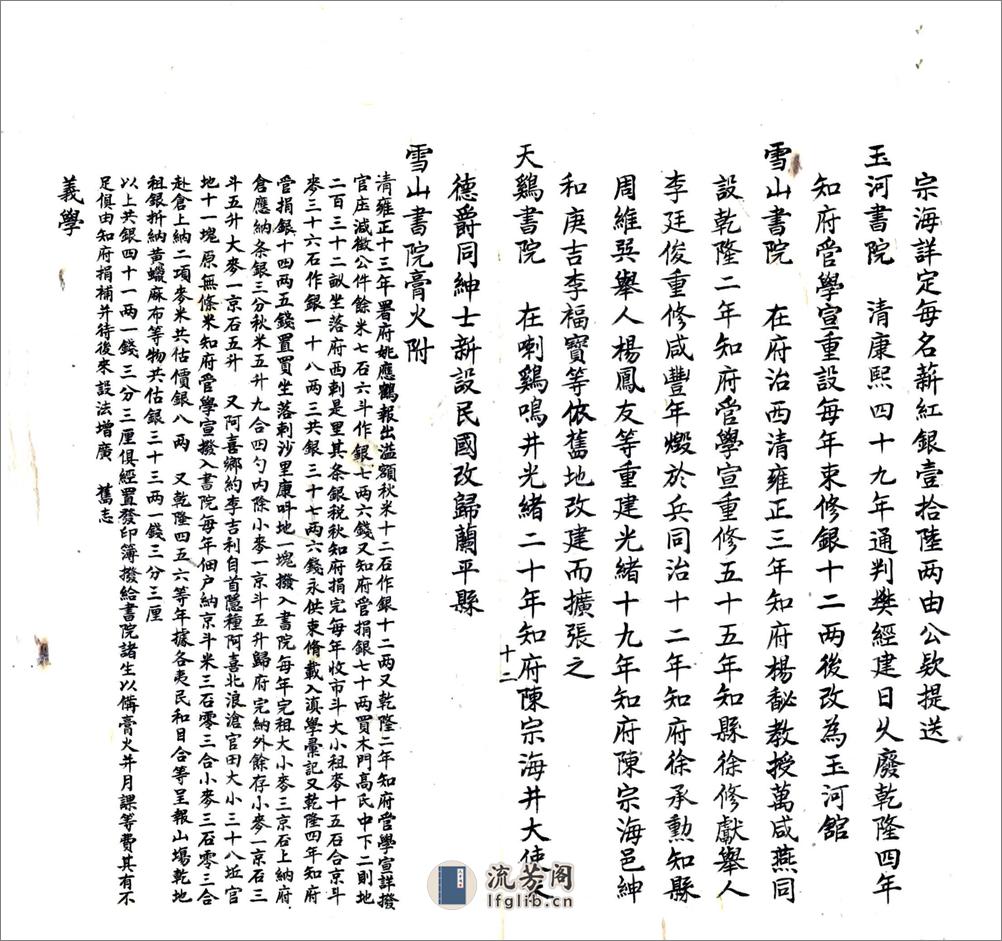 宗海詳定每名薪紅銀壹拾陸两由公欵提送
玉河書院　清康熙四十九年通判樊經建日久廢乾隆四年
知府管學宣重設每年束修銀十二两後改為玉河館
雪山書院　在府治西清雍正三年知府楊馝教授萬咸燕同
設乾隆二年知府管學宣重修五十五年知縣徐修獻舉人
李廷俊重修咸豐年燬於兵同治十二年知府徐承勲知縣
周維㒷舉人楊鳳友等重建光緒十九年知府陳宗海邑紳
和庚吉李福寶等依舊地改建而擴張之
天鷄書院　在喇鷄鳴井光緒二十年知府陳宗海井大使
德爵同紳士新設民國改歸蘭平縣
十二
雪山書院膏火附
清雍正十三年署府姚應鶴報出溢額秋米十二石作銀十二两又乾隆二年知府管學宣詳撥
官庄減徵公件餘米七石六斗作銀七两六錢又知府管捐銀七十两買木門高氏中下二則地
二百三十二畝坐落府西剌是里其条銀税秋知府捐完每年收市斗大小租麥十五石合京斗
麥三十六石作銀一十八两三共銀三十七两六錢永供束脩載入滇學彚記又乾隆四年知府
管捐銀十四两五錢置買坐落剌沙里康呌地一塊撥入書院每年完租大小麥三京石上納府
倉應納条銀三分秋米五升九合四勺内除小麥一京斗五升歸府完納外餘存小麥一京石三
斗五升大麥一京石五升　又阿喜鄉約李吉利自首隱種阿喜北浪滄官田大小三十八坵官
地十一塊原無條米知府管學宣撥入書院每年佃户納京斗米三石零三合小麥三石零三合
赴倉上納二項麥米共估價銀八两　又乾隆四五六等年據各夷民和目合等呈報山塲乾地
租銀折納黄蠟麻布等物共估銀三十三两一錢三分三厘
以上共銀四十一两一錢三分三厘俱經置發印簿撥給書院諸生以俻膏火并月課等費其有不
足俱由知府捐補并待後來設法增廣　舊志
義學
流芳阁
lfglib.cn